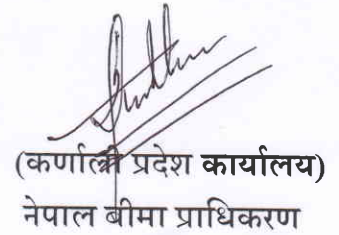 (कर्णाली प्रदेश कार्यालय)
नेपाल बीमा प्राधिकरण